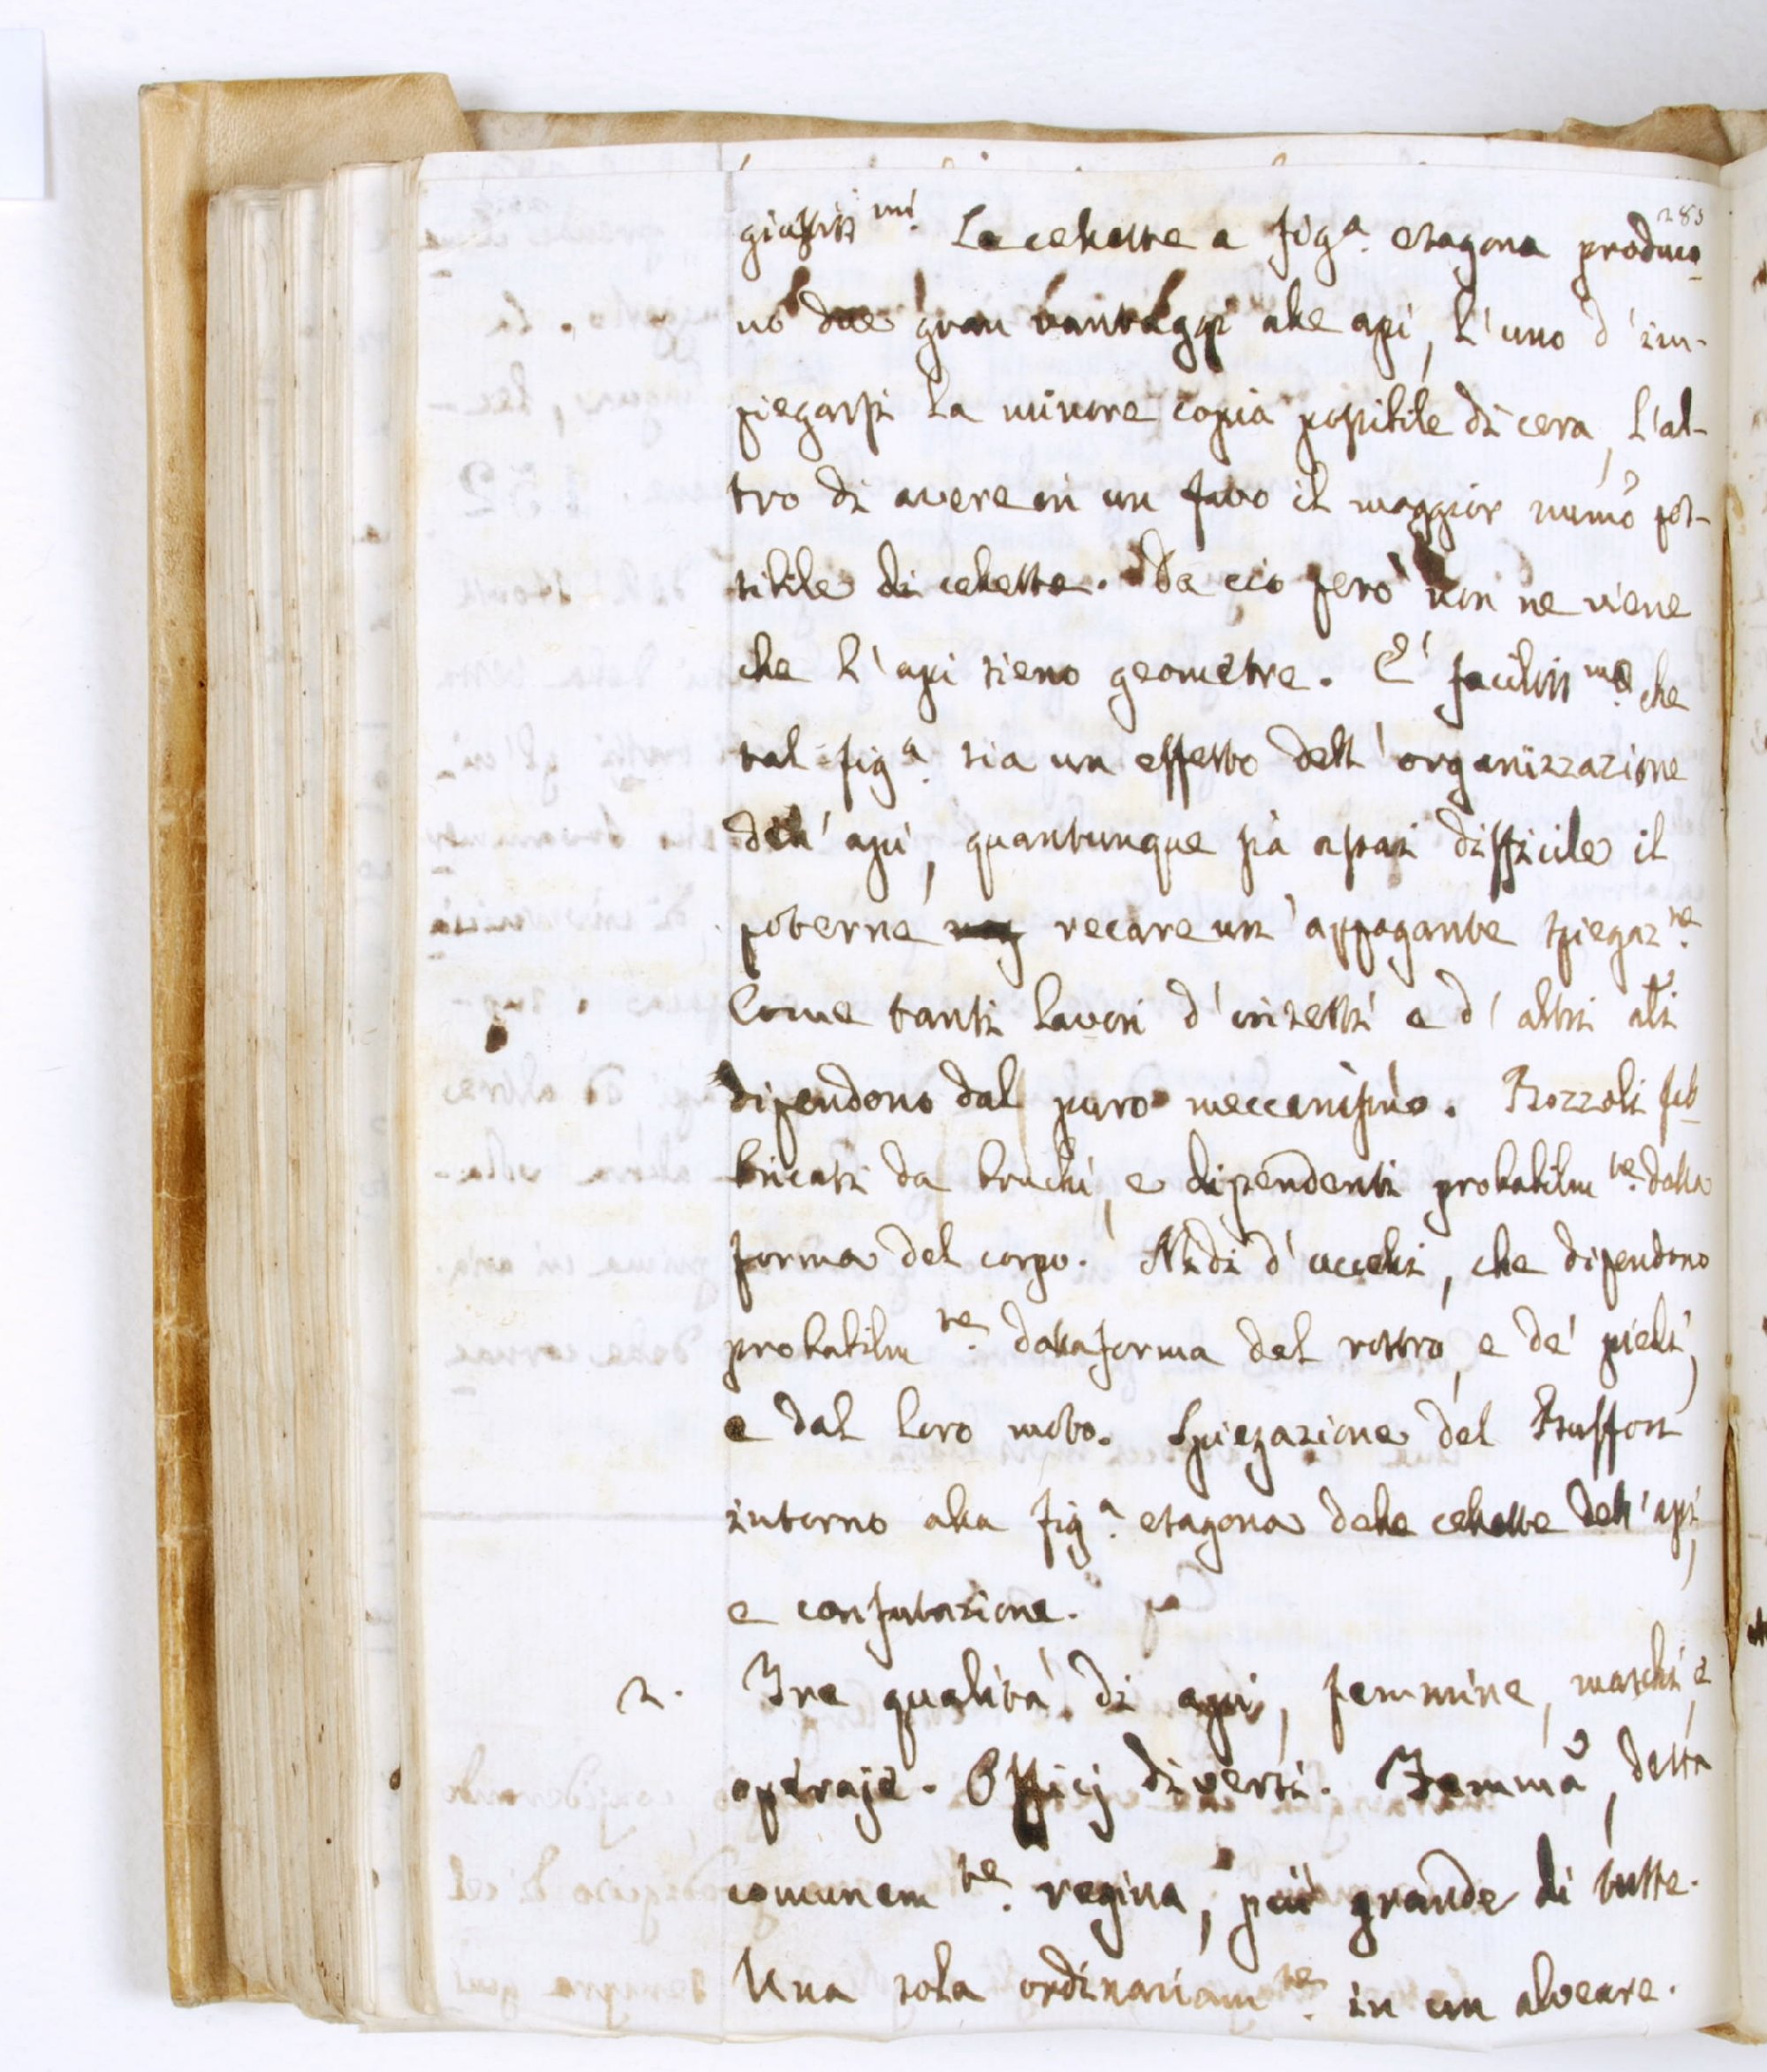 285
giustissmi. Le cellette a figa. esagona produco
no due gran vantaggi alle api, l'uno d'im-
piegarsi la minore copia possibile di cera, l'al-
tro di avere in un favo il maggior numo pos-
sibile di cellette. Da ciò però non ne viene
che l'api sieno geometre. E' facilissme. che
tal figa. sia un effetto dell'organizzazione
dell'api, quantunque sia assai difficile il
poterne recare un'appagante spiegazne.
Come tanti lavori d'insetti e d'altri ali
dipendono dal puro meccanismo. Bozzoli fab
bricati da bruchi, e dipendenti probabilmte. dalla
forma del corpo. Nidi d'uccelli, che dipendono
probabilmte. dalla forma del rostro, e de' piedi,
e dal loro moto. Spiegazione del Buffon
intorno alla figa. esagona delle cellette dell'api,
e confutazione.
2. Tre qualità di api, femmine, maschi, e
operaje. Officj diversi. Femma, detta
comunemte. regina, più grande di tutte.
Una sola ordinariamte. in un alveare.